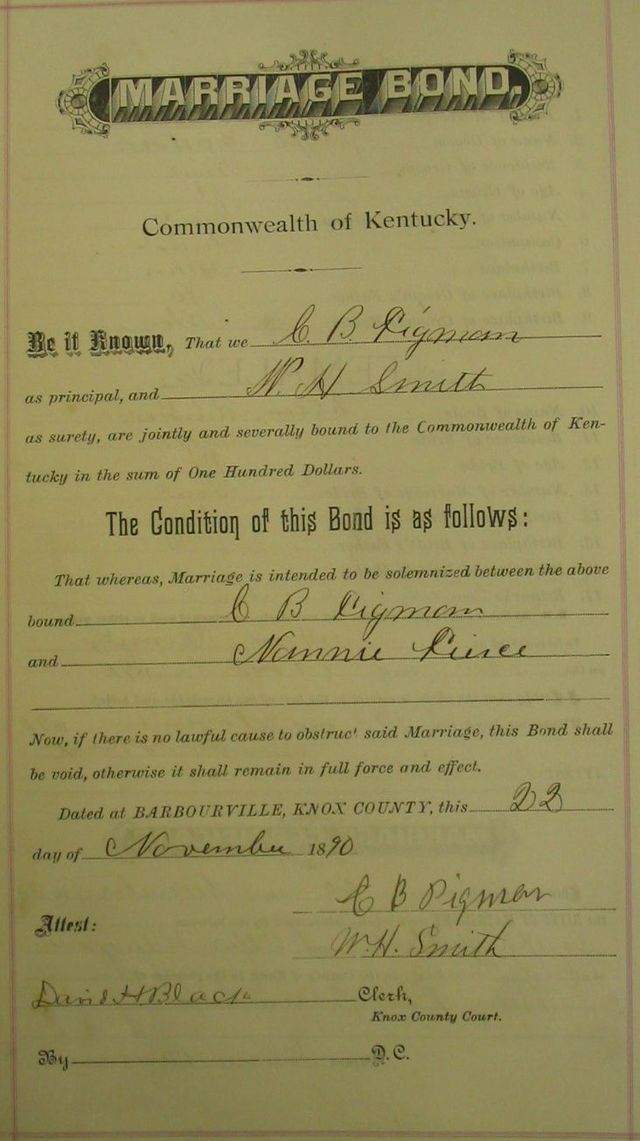 MARRIAGE BOND.
Commonwealth of Kentucky.
Be it Known, That we C. B. Pigman
as principal, and W. H Smith
as surety, are jointly and severally bound to the Commonwealth of Ken-
tucky in the sum of One Hundred Dollars.
The Condition of this Bond is as follows:
That whereas, Marriage is intended to be solemnized between the above
bound C B Pigman
and Nannie Pierce
Now, if there is no lawful cause to obstruct said Marriage, this Bond shall
be void, otherwise it shall remain in full force and effect.
Dated at BARBOURVILLE, KNOX COUNTY, this 22
day of November 1890
C B Pigman
Attest:
W. H. Smith
David H Black Clerk,
Knox County Court.
By D. C.